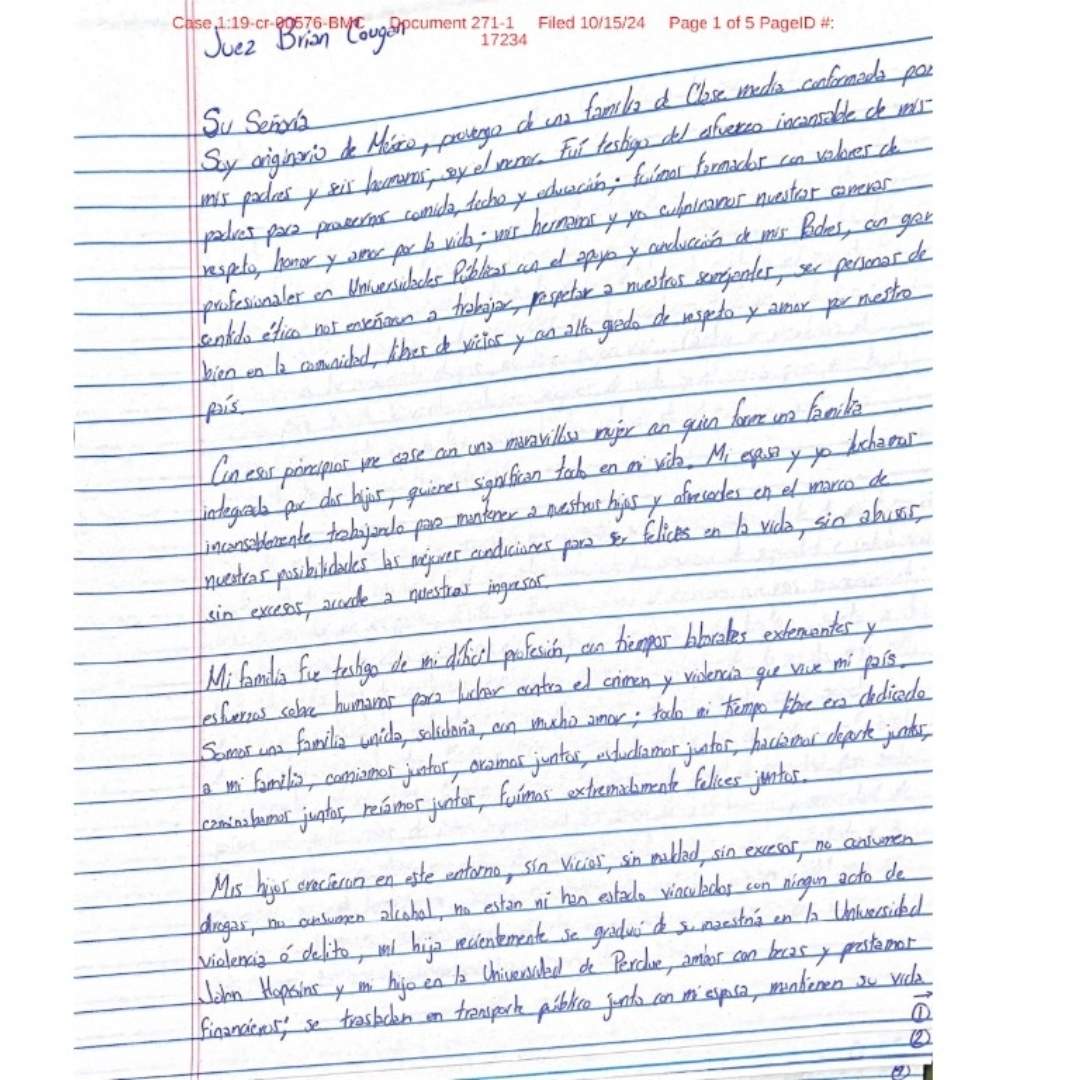 Case 1:19-cr-00576-BMC Document 271-1 Filed 10/15/24 Page 1 of 5 PageID #:
17234
Juez Brian Cougan
Su Señoría
Soy originario de México, provengo de una familia de Clase media conformada por
mis padres y seis hermanos, soy el menor. Fuí testigo del esfuerzo incansable de mis
padres para proveernos comida, techo y educación; fuímos formados con valores de
respeto, honor y amor por la vida; mis hermanos y yo culminamos nuestras carreras
profesionales en Universidades Públicas con el apoyo y conducción de mis Padres, con gran
sentido ético nos enseñaron a trabajar, respetar a nuestros semejantes, ser personas de
bien en la comunidad, libres de vicios y con alto grado de respeto y amor por nuestro
país.
Con esos principios me case con una maravillosa mujer con quien forme una familia
integrada por dos hijos, quienes significan todo en mi vida. Mi esposa y yo luchamos
incansablemente trabajando para mantener a nuestros hijos y ofrecerles en el marco de
nuestras posibilidades las mejores condiciones para ser felices en la vida, sin abusos,
sin excesos, acorde a nuestros ingresos
Mi familia fue testigo de mi difícil profesión, con tiempos laborales extenuantes y
esfuerzos sobre humanos para luchar contra el crimen y violencia que vive mi país.
Somos una familia unida, solidaria, con mucho amor; todo mi tiempo libre era dedicado
a mi familia, comiamos juntos, oramos juntos, estudiamos juntos, haciamos deporte juntos,
caminabamos juntos, reíamos juntos, fuímos extremadamente felices juntos.
Mis hijos crecieron en este entorno, sin vicios, sin maldad, sin excesos, no consumen
drogas, no consumen alcohol, no estan ni han estado vinculados con ningun acto de
violencia ó delito, mi hija recientemente se graduó de su maestría en la Universidad
John Hopkins y mi hijo en la Universidad de Perdue, ambos con becas y prestamos
financieros; se trasladan en transporte público junto con mi esposa, mantienen su vida
①
②